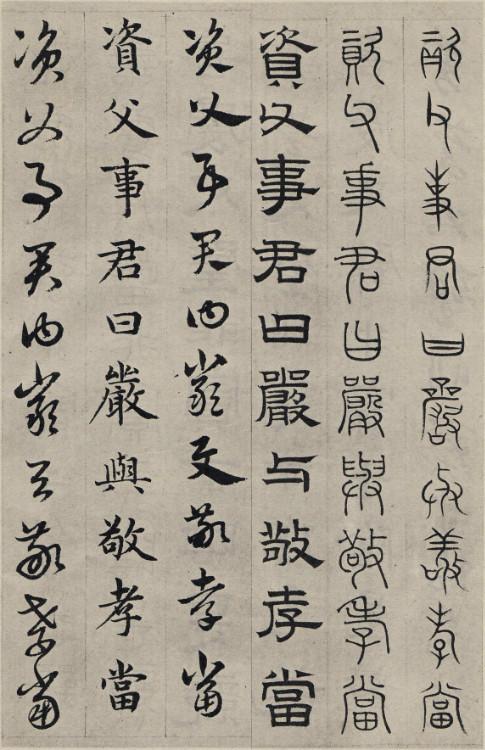 資父事君曰嚴與敬孝當
資父事君曰嚴與敬孝當
資父事君曰嚴与敬孝當
資父事君曰嚴與敬孝當
資父事君曰嚴與敬孝當
資父事君曰嚴與敬孝當